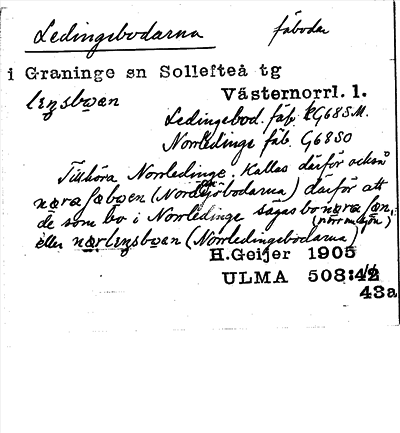 Ledingsbodarna fäbodar
i Graninge sn Sollefteå tg
Västernorrl. l.
Ledingebod. fäb. G68S.M.
Norrledinge fäb. G68SO
Tillhöra Norrledinge. Kallas därför också
(Nordsjöbodarna) därför att
de som bo i Norrledinge sägas bo
(norr om sjön)
eller (Norrledingebodarna)
H.Geijer 1905
ULMA 508:42
43a